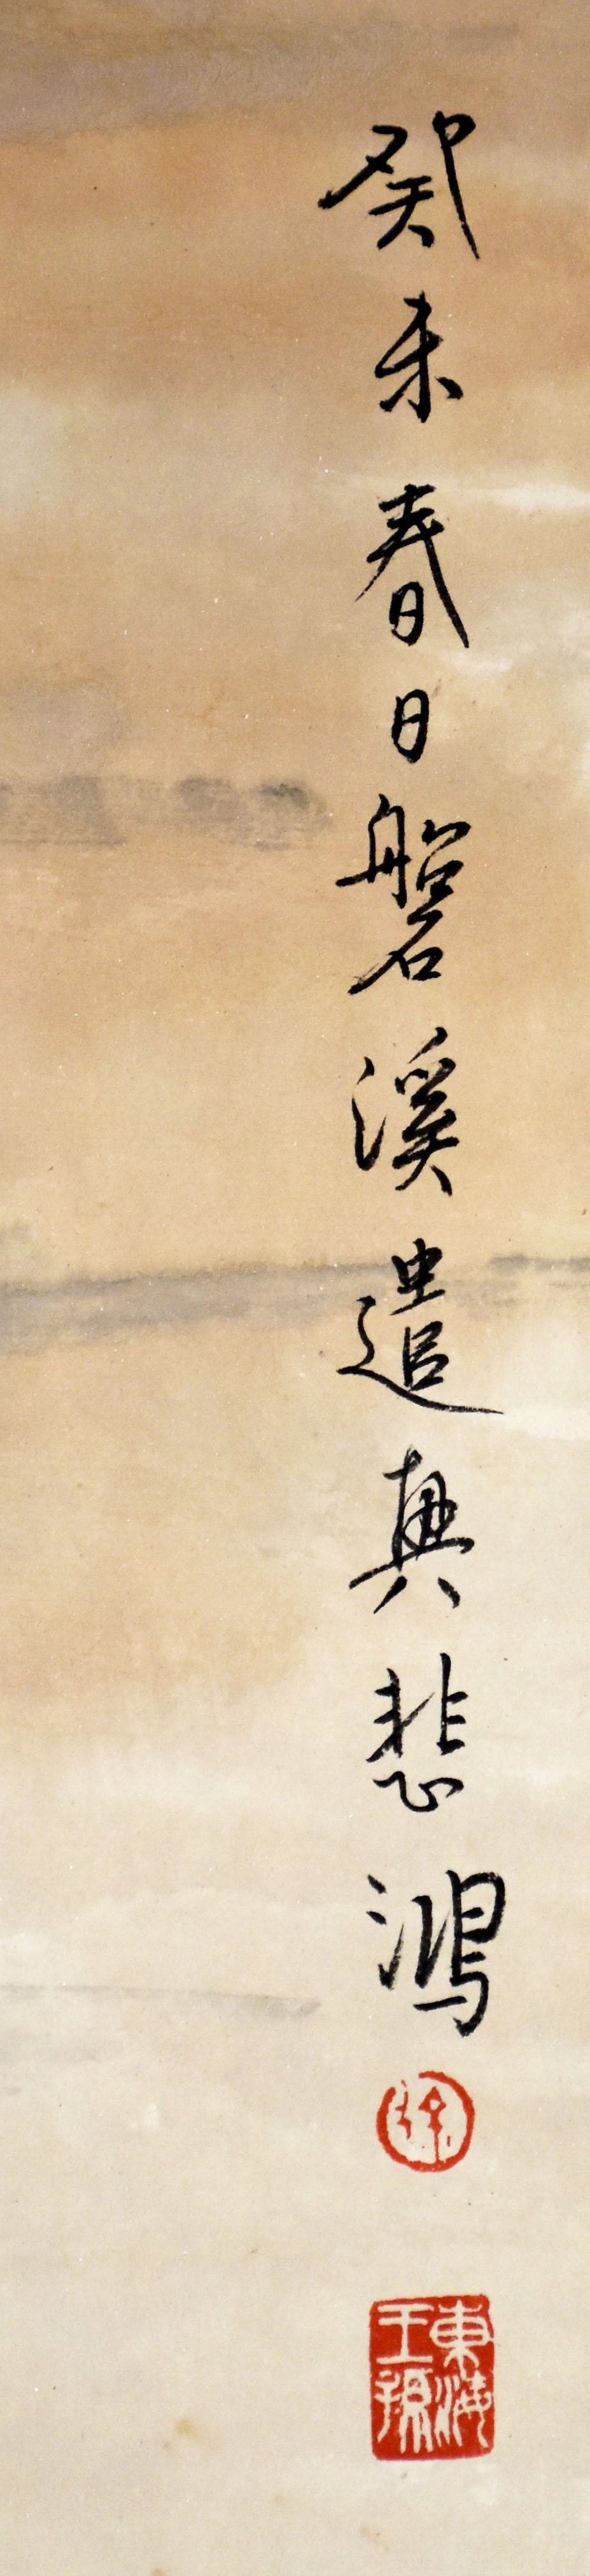 癸未春日磐溪遣興悲鴻
徐
東海王孫